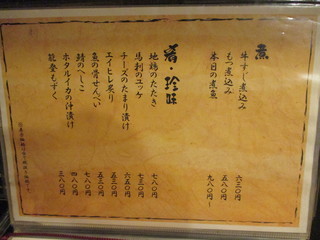 煮
牛すじ煮込み 六三〇
もつ煮込み 五八〇
本日の煮魚 九八〇〜
肴・珍味
地鶏のたたき 七八〇
馬刺のユッケ 七三〇
チーズのたまり漬け 六五〇
エイヒレ炙り 五三〇
魚の骨せんべい 五三〇
鯖のへしこ 七八〇
ホタルイカの汁漬け 四八〇
能登もずく 三八〇